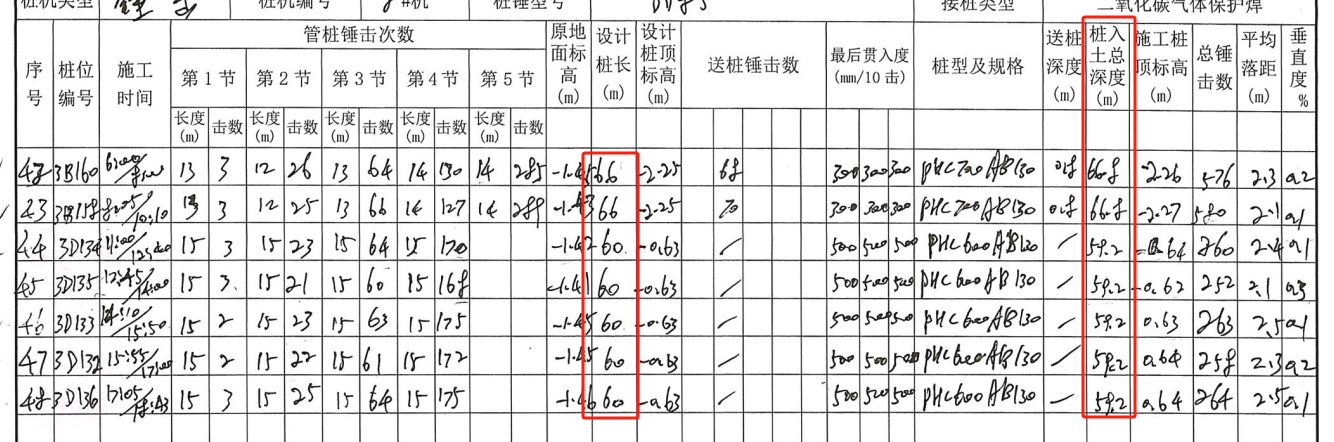 桩机类型 桩机编号 #机 桩锤型号 接桩类型 二氧化碳气体保护焊
序号 桩位编号 施工时间 管桩锤击次数 原地面标高(m) 设计桩长(m) 设计桩顶标高(m) 送桩锤击数 最后贯入度(mm/10击) 桩型及规格 送桩深度(m) 桩入土总深度(m) 施工桩顶标高(m) 总锤击数 平均落距(m) 垂直度%
第1节 第2节 第3节 第4节 第5节
长度(m) 击数 长度(m) 击数 长度(m) 击数 长度(m) 击数 长度(m) 击数
3B160 13 3 12 26 13 64 14 130 14 285 -1.45 66 -2.25 68 300 300 300 PHC700AB130 0.8 66.8 -2.26 576 2.3 0.2
43 3B158 13 3 12 25 13 66 14 127 14 289 -1.43 66 -2.25 70 300 300 300 PHC700AB130 0.8 66.8 -2.27 580 2.1 0.1
44 3D134 15 3 15 23 15 64 15 170 -1.42 60 -0.63 / 500 500 500 PHC600AB130 / 59.2 260 2.4 0.1
45 3D135 12:45/14:00 15 3 15 21 15 60 15 168 -1.41 60 -0.63 / 500 500 500 PHC600AB130 / 59.2 -0.62 252 2.1 0.3
46 3D133 14:10/15:50 15 2 15 23 15 63 15 175 -1.45 60 -0.63 / 500 500 500 PHC600AB130 / 59.2 0.63 263 2.5 0.1
47 3D132 15:55/17:00 15 2 15 22 15 61 15 172 -1.45 60 -0.63 / 500 500 500 PHC600AB130 / 59.2 0.64 258 2.3 0.2
48 3D136 17:05/18:43 15 3 15 25 15 64 15 175 -1.46 60 -0.63 / 500 500 500 PHC600AB130 — 59.2 0.64 264 2.5 0.1